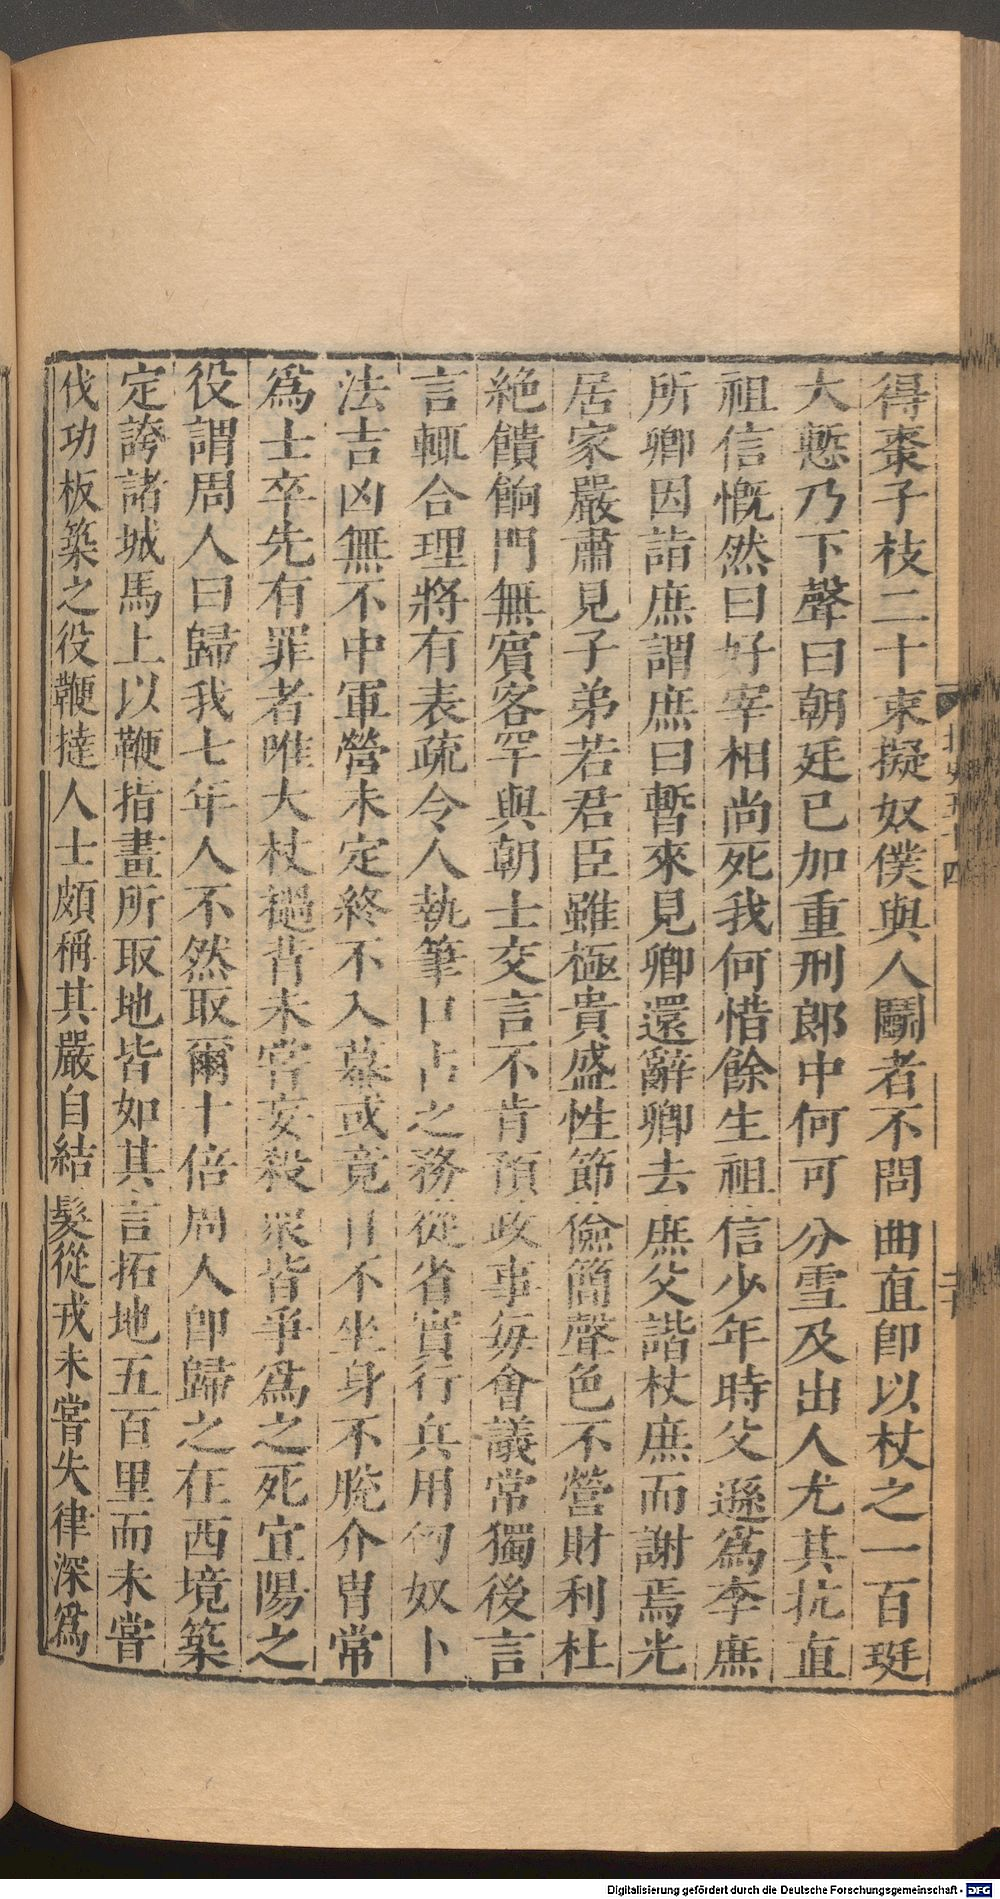 得棗子枝二十束擬奴僕與人鬬者不問曲直即以杖之一百珽
大慙乃下聲曰朝廷已加重刑郎中何可分雪及出人尤其抗直
祖信慨然曰好宰相尚死我何惜餘生祖信少年時父遜爲李庶
所卿因詣庶謂庶曰暫來見卿還辭卿去庶父諧杖庶而謝焉光
居家嚴肅見子弟若君臣雖極貴盛性節儉簡聲色不營財利杜
絶饋餉門無賓客罕與朝士交言不肯預政事每會議常獨後言
言輒合理將有表疏令人執筆口占之務從省實行兵用匈奴卜
法吉凶無不中軍營未定終不入幕或竟日不坐身不脫介冑常
爲士卒先有罪者唯大杖檛背未嘗妄殺衆皆爭爲之死宜陽之
役謂周人曰歸我七年人不然取爾十倍周人即歸之在西境築
定誇諸城馬上以鞭指畫所取地皆如其言拓地五百里而未嘗
伐功板築之役鞭撻人士頗稱其嚴自結髮從戎未嘗失律深爲
北史五十四
二十
Digitalisierung gefördert durch die Deutsche Forschungsgemeinschaft - DFG